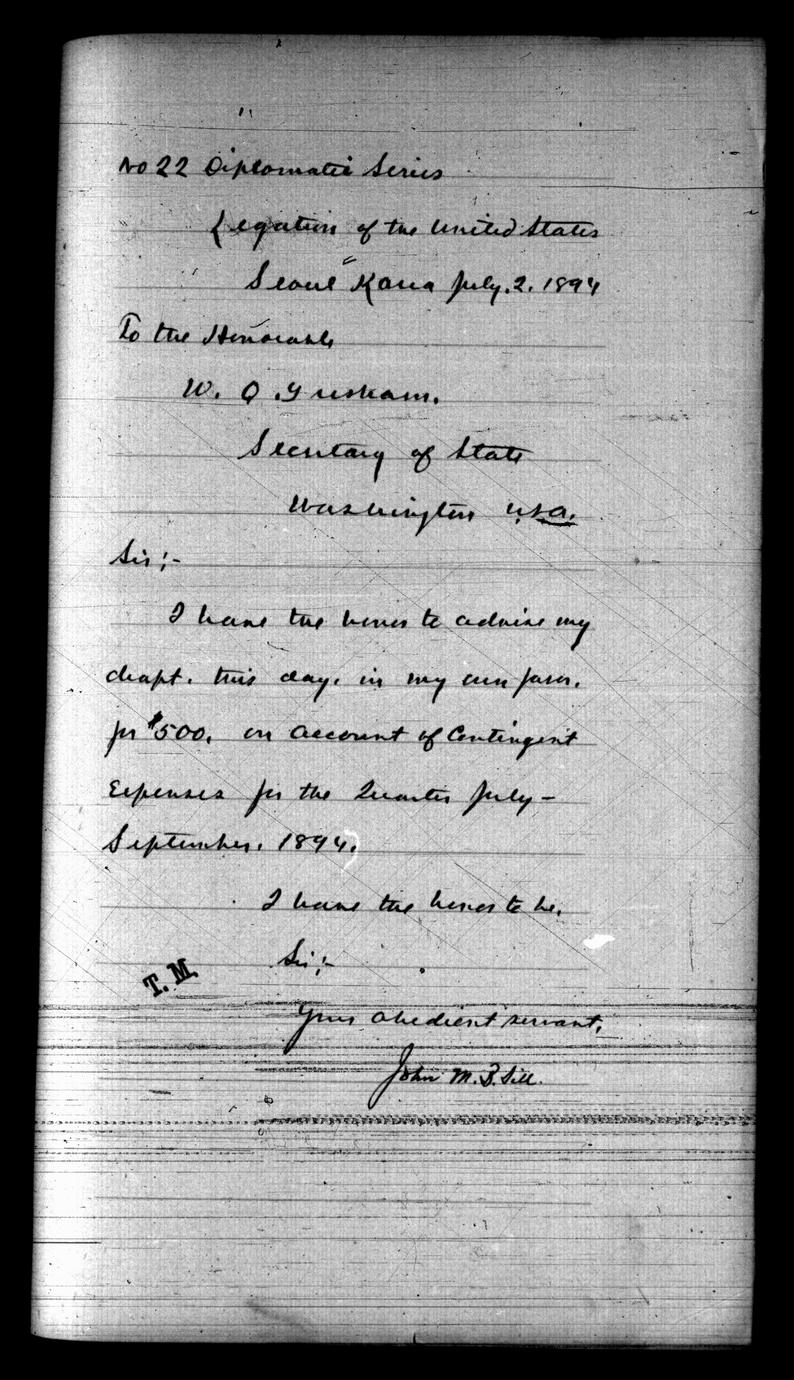 No 22 Diplomatic Series
Legation of the United States
Seoul Korea July. 2. 1894
To the Honorable
W. Q. Gresham.
Secretary of State
Washington U.S.A.
Sir;-
I have the honor to advise my
draft. this day. in my own favor.
for $500. on account of Contingent
Expenses for the Quarter July-
September. 1894.
I have the honor to be.
Sir;-
T. M.
Your obedient servant,
John M. B. Sill.